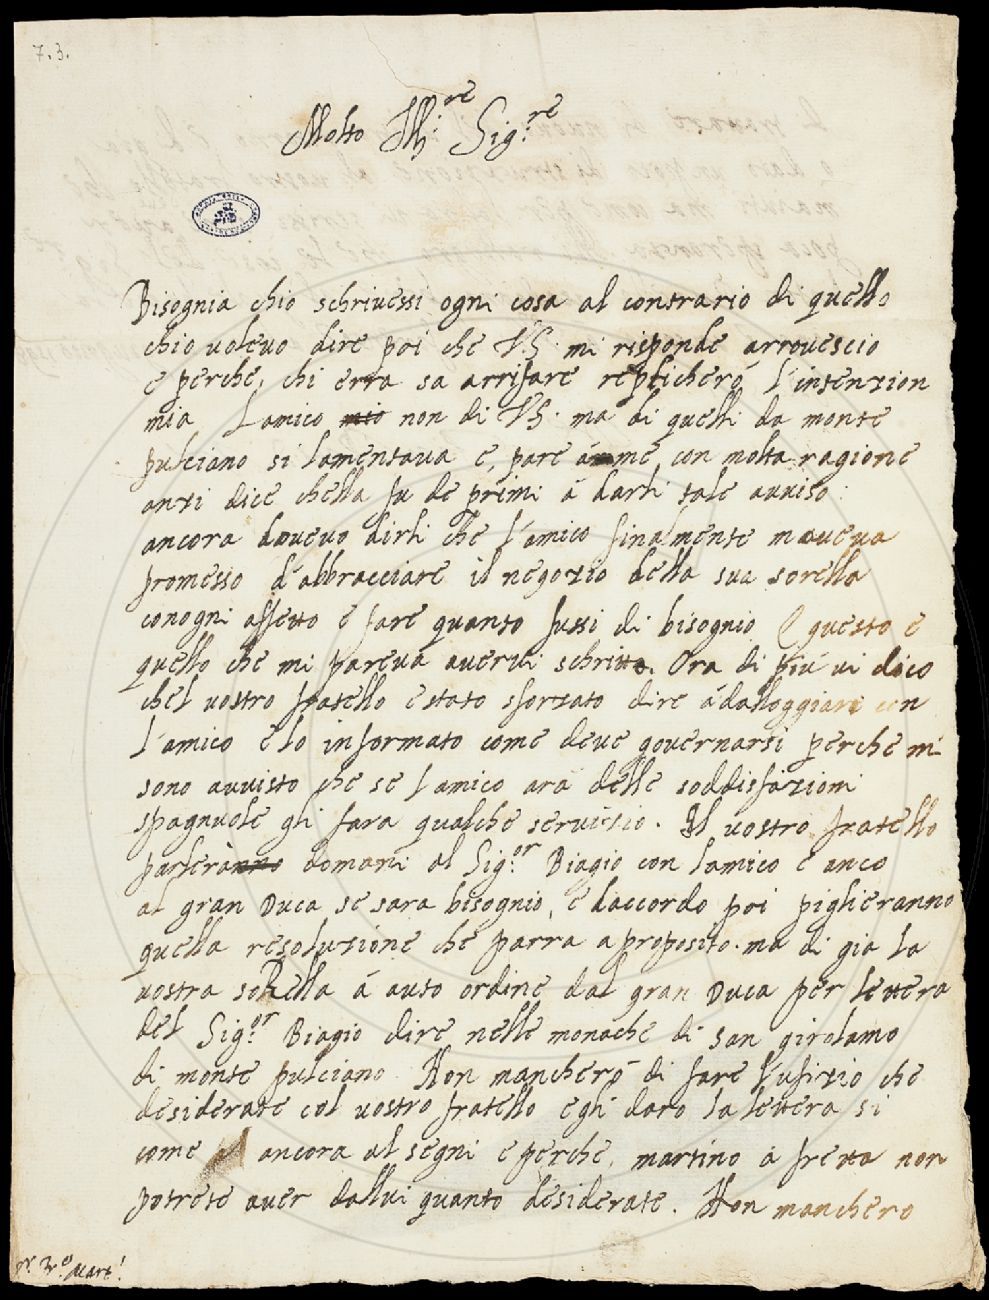 7. 3.
Molto Ill.re Sig.re
Bisognia chio schriuessi ogni cosa al contrario di quello
chio uoleuo dire poi che V.S. mi risponde arrouescio
e perche, chi erra sa arrifare replicherò l'intenzion
mia L'amico mio non di V.S. ma di quelli da monte
pulciano si lamentaua e, pare àmme con molta ragione
anzi dice chella fu de primi á darli tale auuiso:
ancora doueuo dirli che l'amico finalmente maueua
promesso d'abbracciare il negozio della sua sorella
conogni affetto e fare quanto fussi di bisognio E questo e
quello che mi pareua auerui schritto. Ora di piú ui dico
chel uostro fratello e stato sforzato dire ádalloggiare con
l'amico e lo informato come deue gouernarsi perche mi
sono auuisto che se l'amico ara delle soddisfazioni
spagnuole gli fara qualche seruitio. Il uostro fratello
parlerànno domani al Sig.or Biagio con l'amico e anco
al gran Duca se sara bisognio, e daccordo poi piglieranno
quella resoluzione che parra a proposito. ma di gia la
uostra soRella á auto ordine dal gran Duca per lettera
del Sig.or Biagio dire nelle monache di san girolamo
di monte pulciano. Non mancheró di fare l'ufizio che
desiderate col uostro fratello egli daro la lettera si
come ancora al segni e perche, martino a fretta non
potrete auer dallui quanto desiderate. Non manchero